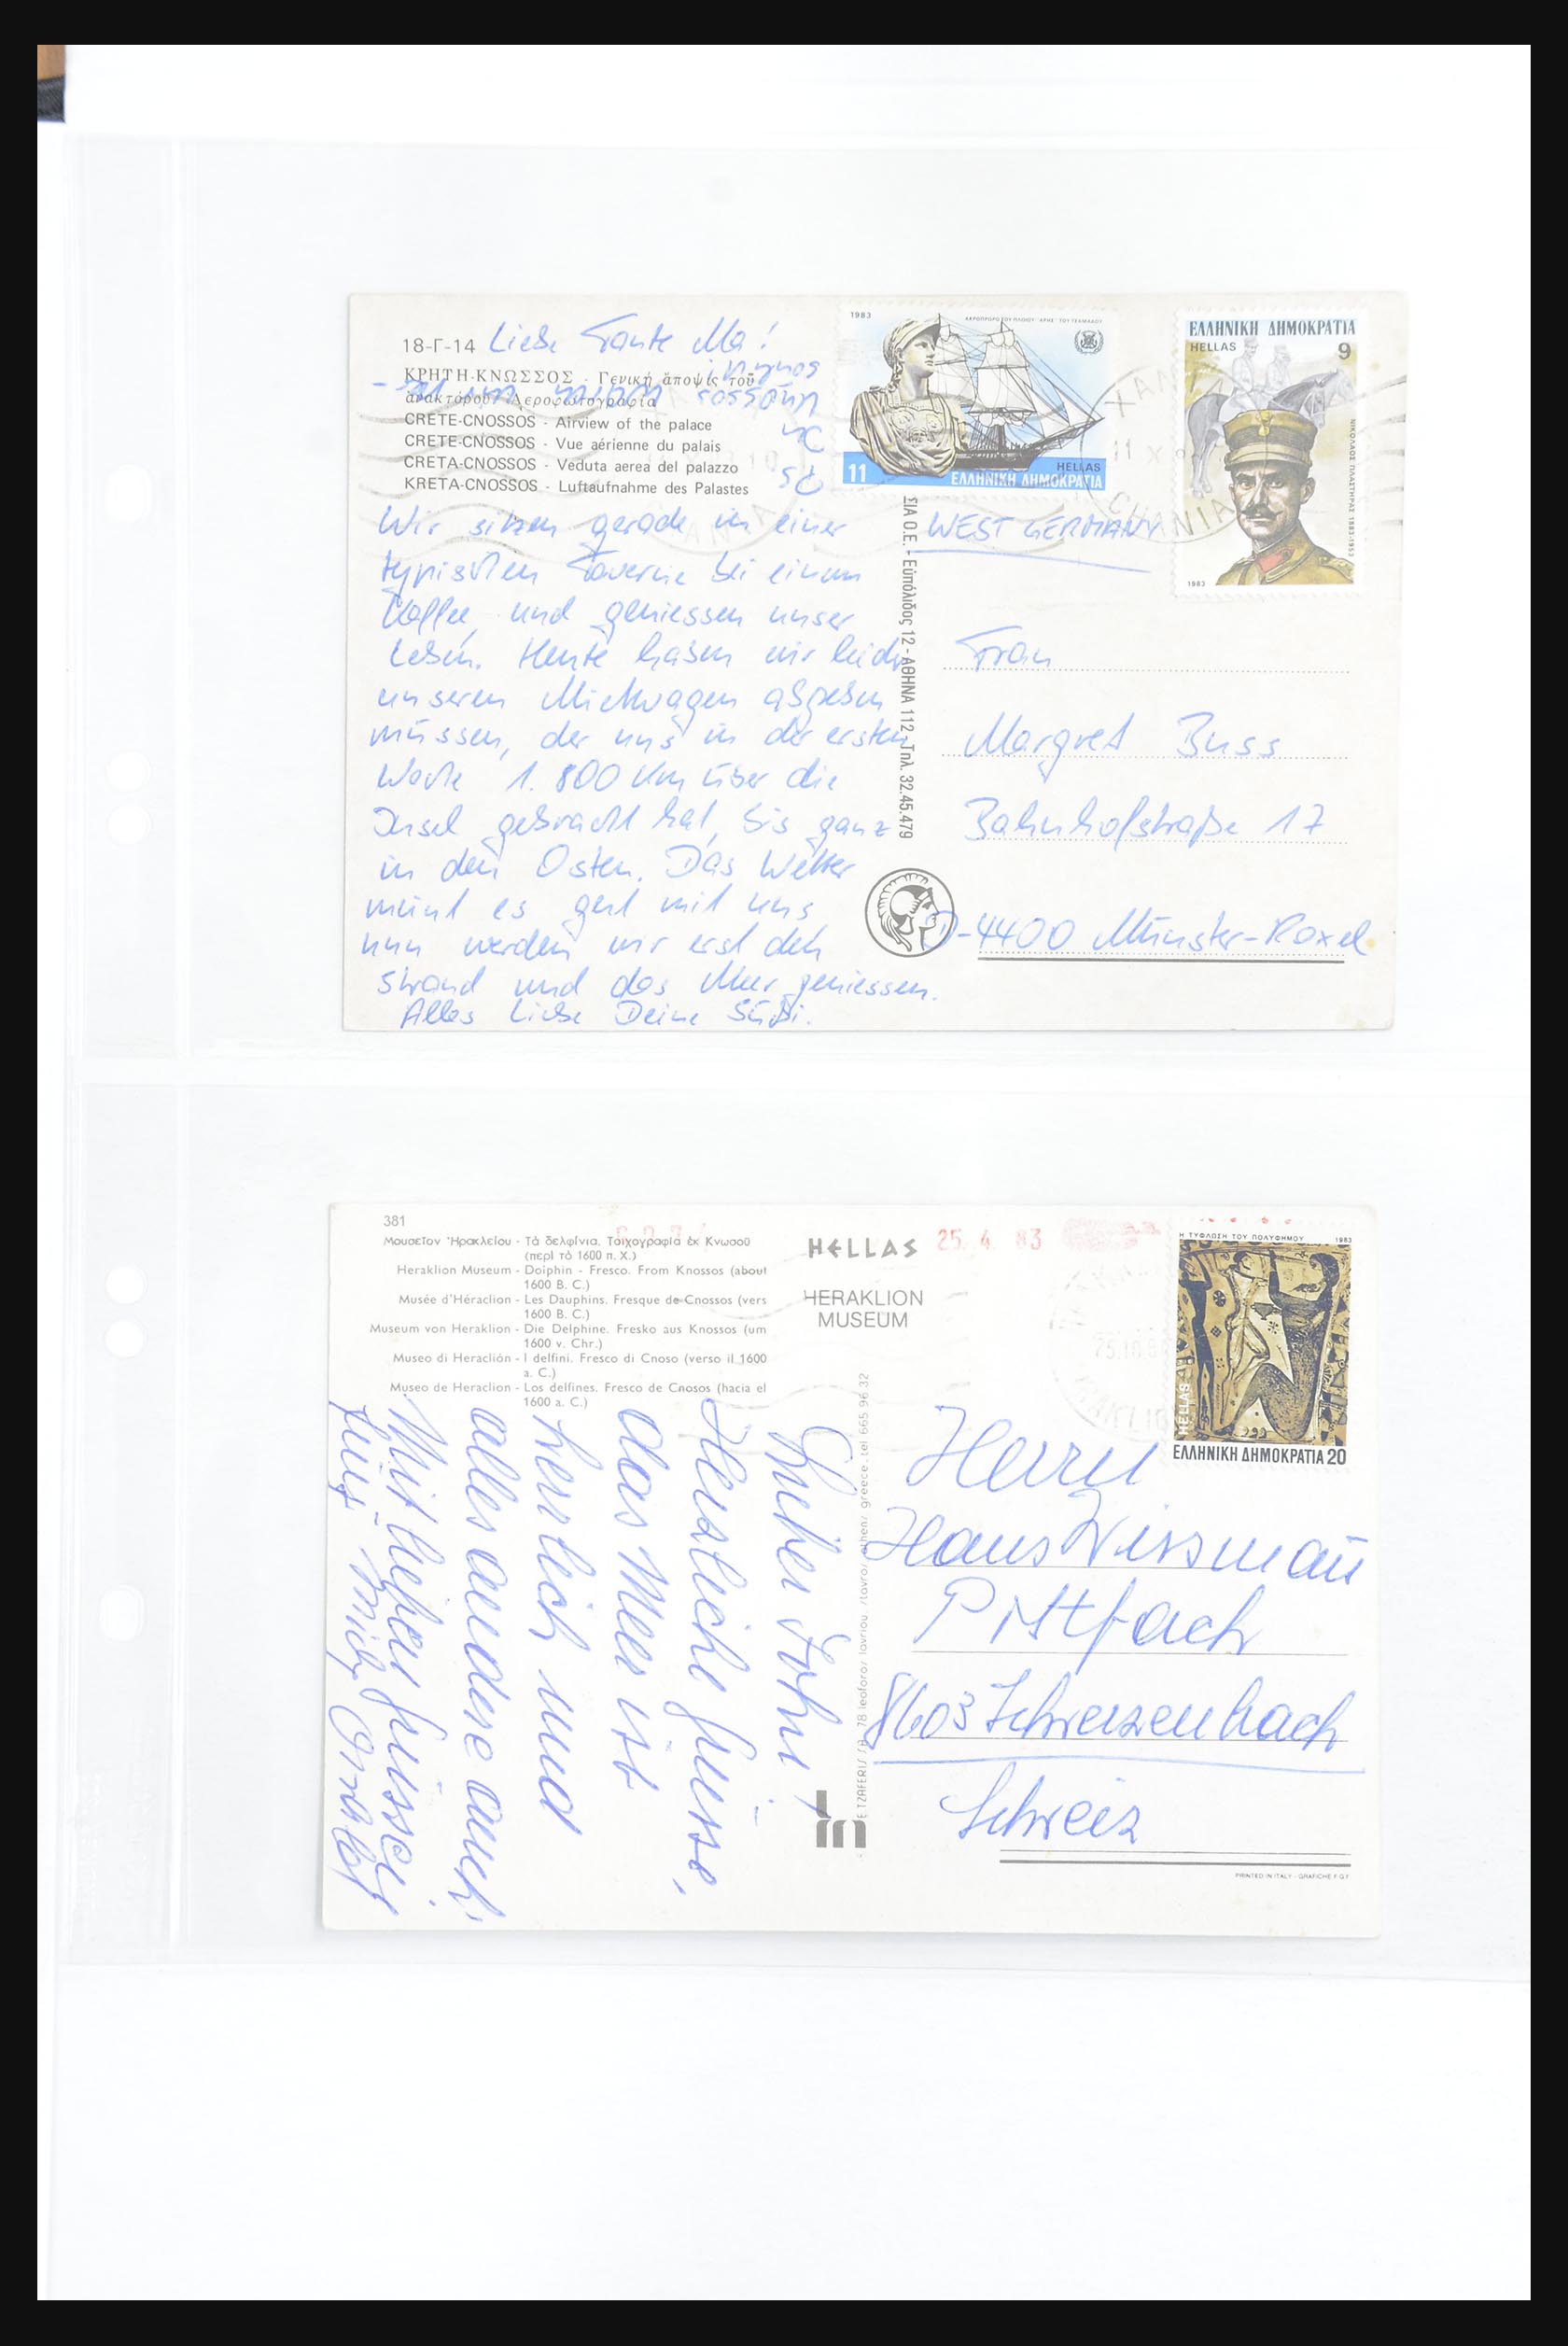 18-Γ-14 Liebe Tante Ma!
ΚΡΗΤΗ-ΚΝΩΣΣΟΣ - Γενική ἄποψις τοῦ
ἀνακτόρου. Ἀεροφωτογραφία
CRETE-CNOSSOS - Airview of the palace
CRETE-CNOSSOS - Vue aérienne du palais
CRETA-CNOSSOS - Veduta aerea del palazzo
KRETA-CNOSSOS - Luftaufnahme des Palastes
Wir sitzen gerade in einer
typischen Taverne bei einem
Kaffee und geniessen unser
Leben. Heute haben wir leider
unseren Mietwagen abgeben
müssen, der uns in der ersten
Woche 1.800 Km über die
Insel gebracht hat, bis ganz
in den Osten. Das Wetter
meint es gut mit uns
nun werden wir erst den
Strand und das Meer geniessen.
Alles Liebe Deine Süßi.
1983
11
HELLAS
ΕΛΛΗΝΙΚΗ ΔΗΜΟΚΡΑΤΙΑ
ΕΛΛΗΝΙΚΗ ΔΗΜΟΚΡΑΤΙΑ
HELLAS 9
ΝΙΚΟΛΑΟΣ ΠΛΑΣΤΗΡΑΣ 1883-1953
1983
ΧΑΝΙΑ
CHANIA
ΣΙΑ Ο.Ε. - Εὐπόλιδος 12 - ΑΘΗΝΑ 112 - Τηλ. 32.45.479
WEST GERMANY
Frau
Margret Buss
Bahnhofstraße 17
D-4400 Münster-Roxel
381
Μουσεῖον Ἡρακλείου - Τὰ δελφίνια. Τοιχογραφία ἐκ Κνωσοῦ
(περὶ τὸ 1600 π. Χ.)
Heraklion Museum - Dolphin - Fresco. From Knossos (about
1600 B. C.)
Musée d'Héraclion - Les Dauphins. Fresque de Cnossos (vers
1600 B. C.)
Museum von Heraklion - Die Delphine. Fresko aus Knossos (um
1600 v. Chr.)
Museo di Heraclión - I delfini. Fresco di Cnoso (verso il 1600
a. C.)
Museo de Heraclion - Los delfines. Fresco de Cnosos (hacia el
1600 a. C.)
HELLAS
HERAKLION
MUSEUM
25. 4 83
Η ΤΥΦΛΩΣΗ ΤΟΥ ΠΟΛΥΦΗΜΟΥ 1983
HELLAS
ΕΛΛΗΝΙΚΗ ΔΗΜΟΚΡΑΤΙΑ 20
Herzliche Grüsse,
das Meer ist
herrlich und
alles andere auch.
Mit lieben Grüssen
E TZAFERIS SA 78 leoforos lavriou stavros athens greece. tel 665 96 32
Herrn
Hans Wissmañ
Postfach
8603 Schwerzenbach
Schweiz
PRINTED IN ITALY - GRAFICHE F.G.F.